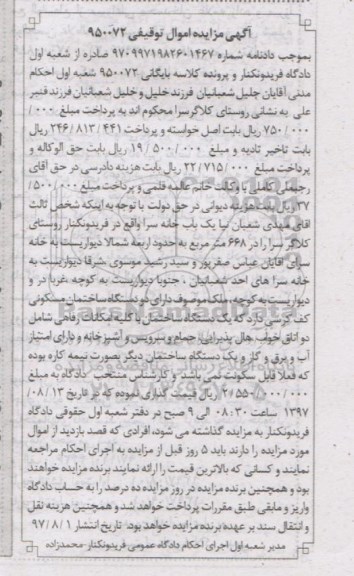 آگهی مزایده اموال توقیفی ۹۵۰۰۷۲
بموجب دادنامه شماره ۹۷۰۹۹۷۱۹۸۲۶۰۱۴۶۷ صادره از شعبه اول
دادگاه فریدونکنار و پرونده کلاسه بایگانی ۹۵۰۰۷۲ شعبه اول احکام
مدنی آقایان جلیل شعبانیان فرزند خلیل و خلیل شعبانیان فرزند قنبر
علی به نشانی روستای کلاگرسرا محکوم اند به پرداخت مبلغ ۰۰۰/
۷۵۰/۰۰۰ ریال بابت اصل خواسته و پرداخت ۲۴۶/۸۱۳/۴۴۱ ریال
بابت تاخیر تادیه و مبلغ ۱۹/۵۰۰/۰۰۰ ریال بابت حق الوکاله و
پرداخت مبلغ ۲۲/۷۱۵/۰۰۰ ریال بابت هزینه دادرسی در حق آقای
رجبعلی کاملی با وکالت خانم عالمه قلمی و پرداخت مبلغ ۵۰۰/۰۰۰/
۳۷ بابت هزینه دیوانی در حق دولت با توجه به اینکه شخص ثالث
آقای مهدی شعبان نیا یک باب خانه سرا واقع در فریدونکنار روستای
کلاگر سرا را در ۶۶۸ متر مربع به حدود اربعه شمالا دیواریست به خانه
سرای آقایان عباس صفرپور و سید رشید موسوی ،شرقا دیواریست به
خانه سرا های احد شعبانیان ، جنوبا دیواریست به کوچه ،غربا در و
دیواریست به کوچه، ملک موصوف دارای دو دستگاه ساختمان مسکونی
کف کرسی دارد که یک دستگاه ساختمان با کلیه امکانات رفاهی شامل
دو اتاق خواب ،هال پذیرایی، حمام و سرویس و آشپزخانه و دارای امتیاز
آب و برق و گاز و یک دستگاه ساختمان دیگر بصورت نیمه کاره بوده
که فعلا قابل سکونت نمی باشد، با کارشناس منتخب دادگاه به مبلغ
۲/۵۵۰/۰۰۰/۰۰۰ ریال قیمت گذاری نموده که در تاریخ ۰۸/۱۳/
۱۳۹۷ ساعت ۰۸:۳۰ الی ۹ صبح در دفتر شعبه اول حقوقی دادگاه
فریدونکنار به مزایده گذاشته می شود، افرادی که قصد بازدید از اموال
مورد مزایده را دارند باید ۵ روز قبل از مزایده به اجرای احکام مراجعه
نمایند و کسانی که بالاترین قیمت را ارائه نمایند برنده مزایده خواهند
بود و همچنین برنده مزایده در روز مزایده ده درصد را به حساب دادگاه
واریز و مابقی طبق مقررات پرداخت خواهد شد و همچنین هزینه نقل
و انتقال سند بر عهده برنده مزایده خواهد بود. تاریخ انتشار ۹۷/۸/۱
مدیر شعبه اول اجرای احکام دادگاه عمومی فریدونکنار-محمدزاده